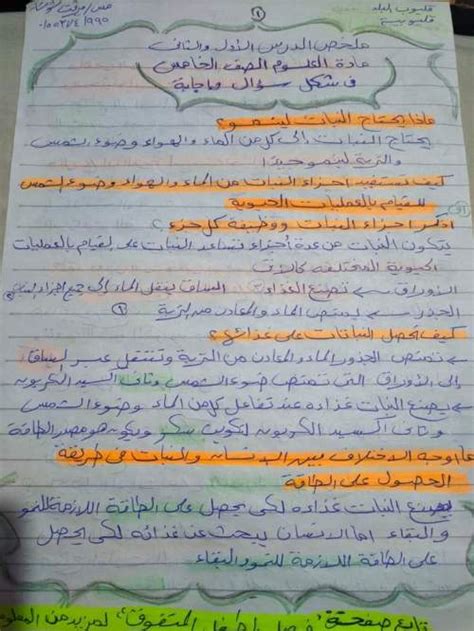 قليوب البلد
قليوبية
١
ملخص الدرس الأول والثانى
مادة العلوم الصف الخامس
فى شكل سؤال وإجابة
ماذا يحتاج النبات لينمو؟
يحتاج النبات إلى كل من الماء والهواء وضوء الشمس
والتربة لينمو جيدا
كيف تستفيد أجزاء النبات من الماء والهواء وضوء الشمس
للقيام بالعمليات الحيوية
أذكر أجزاء النبات ووظيفة كل جزء؟
يتكون النبات من عدة أجزاء تساعد النبات على القيام بالعمليات
الحيوية المختلفة كالآتى
الأوراق ← تصنع الغذاء الساق ينقل الماء إلى جميع أجزاء النبات
الجذر ← يمتص الماء والمعادن من التربة
كيف تحصل النباتات على غذائها؟
← تمتص الجذور الماء والمعادن من التربة وتنتقل عبر الساق
إلى الأوراق التى تمتص ضوء الشمس وثانى أكسيد الكربون
← يصنع النبات غذاءه عند تفاعل كل من الماء وضوء الشمس
وثانى أكسيد الكربون لتكوين سكر ويكون هو مصدر الطاقة
ما أوجه الاختلاف بين الإنسان والنبات فى طريقة
الحصول على الطاقة
يصنع النبات غذاءه لكى يحصل على الطاقة اللازمة للنمو
والبقاء أما الإنسان يبحث عن غذائه لكى يحصل
على الطاقة اللازمة للنمو والبقاء
تابع صفحة "فصل أطفال المتفوق" لمزيد من